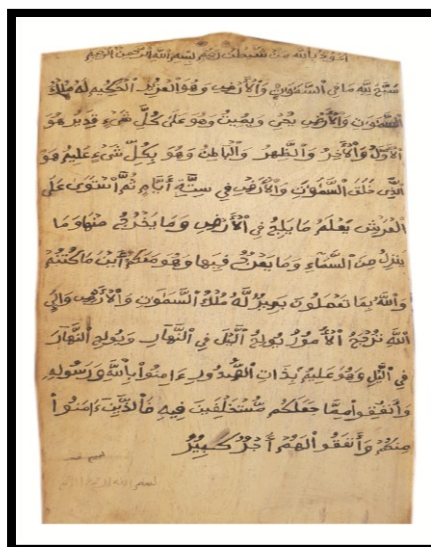 اعوذ بالله من شيطن الرجيم بسم الله الرحمن الرحيم
سبح لله ما في السموت والأرض وهو العزيز الحكيم له ملك
السموت والأرض يحي ويميت وهو على كل شيء قدير هو
الأول والأخر والظهر والباطن وهو بكل شيء عليم هو
الذي خلق السموت والأرض في ستة أيام ثم استوى على
العرش يعلم ما يلج في الأرض وما يخرج منها وما
ينزل من السماء وما يعرج فيها وهو معكم أين ما كنتم
والله بما تعملون بصير له ملك السموت والأرض وإلى
الله ترجع الأمور يولج اليل في النهار ويولج النهار
في اليل وهو عليم بذات الصدور ءامنوا بالله ورسوله
وأنفقوا مما جعلكم مستخلفين فيه فالذين ءامنوا
منكم وأنفقوا لهم أجر كبير